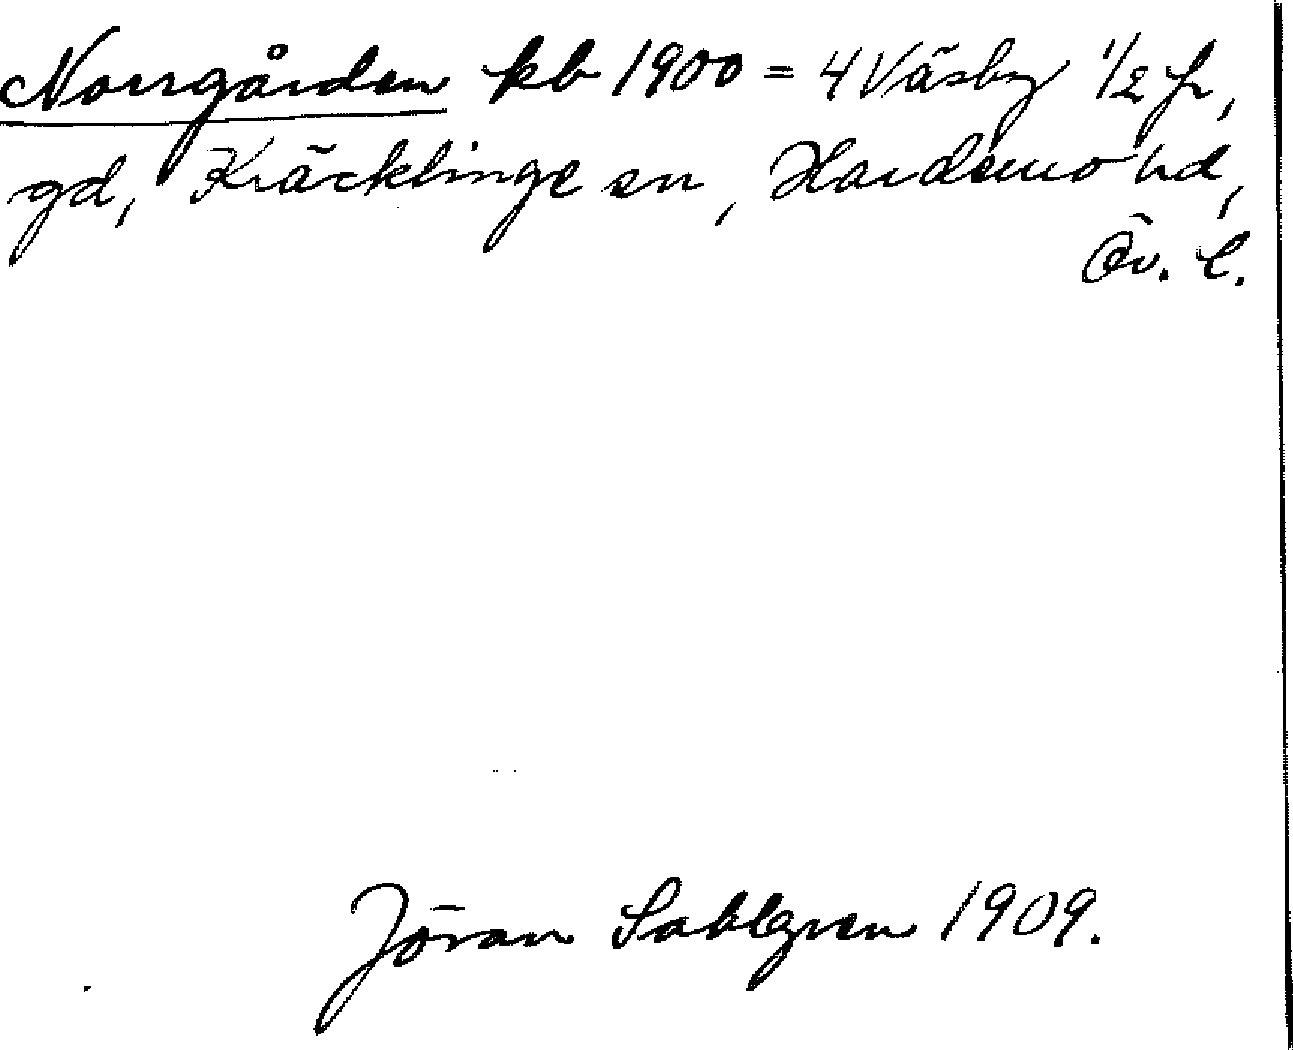 Norrgården kb 1900 = 4 Väsby 1/2 fr,
gd, Kräcklinge sn, Hardemo hd,
Öv. l.
Jöran Sahlgren 1909.